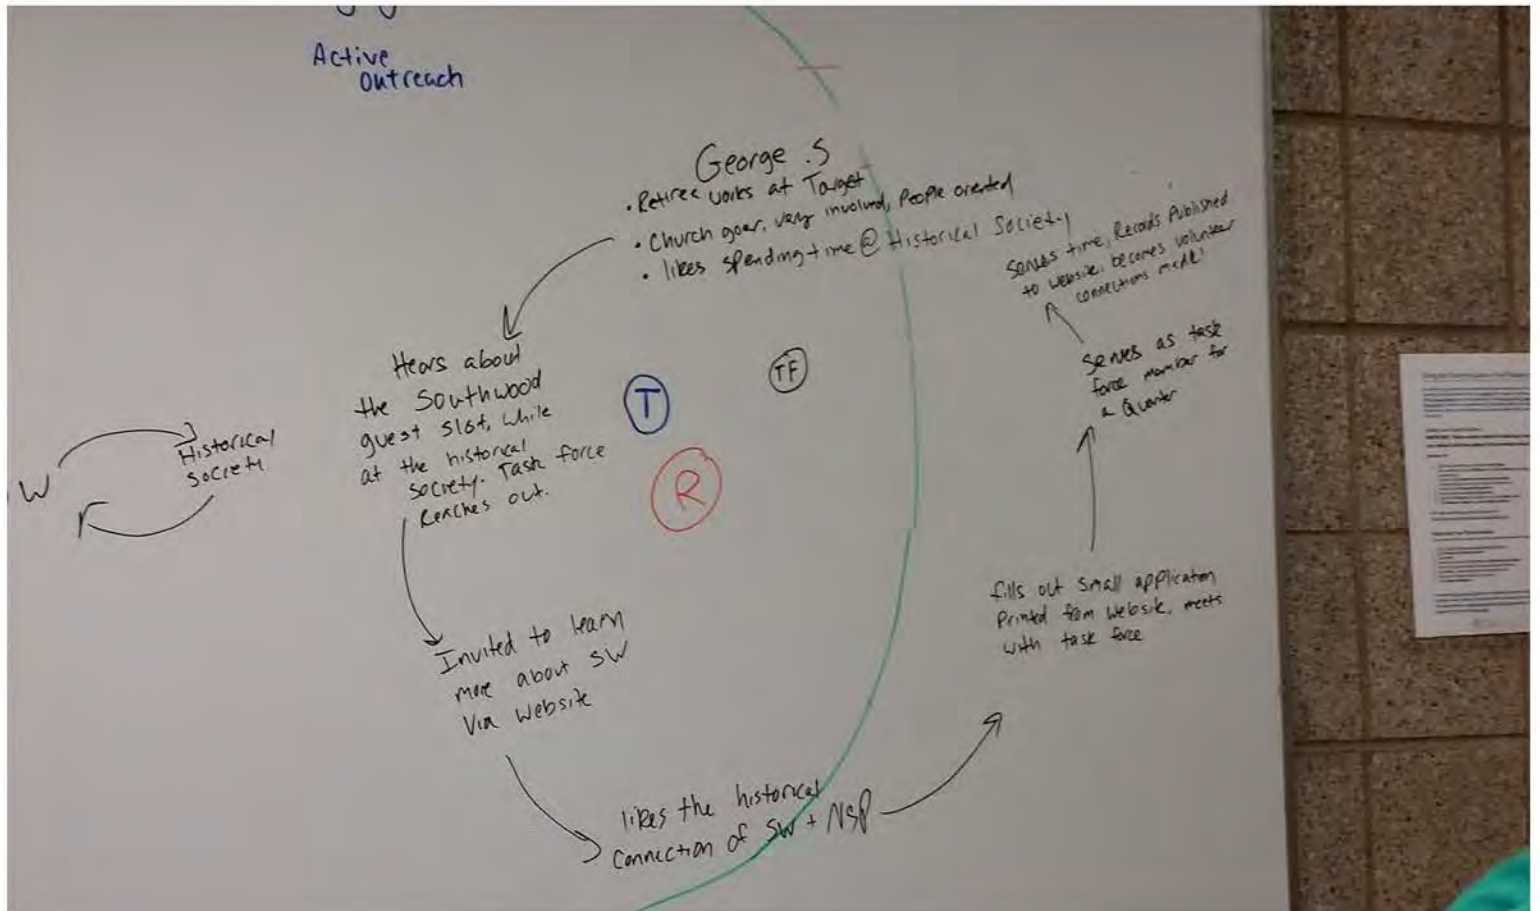 Active
outreach
George .S
• Retiree works at Target
• Church goer, very involved, People oriented
• likes spending time @ Historical Society
Hears about
the Southwood
guest slot, while
at the historical
society. Task force
Reaches out.
W
Historical
society
T
TF
R
Invited to learn
more about SW
Via website
likes the historical
Connection of SW + NSP
fills out small application
Printed from website, meets
with task force
Serves as task
force member for
a Quarter
Serves time, Records Published
to website, becomes volunteer
connections made!